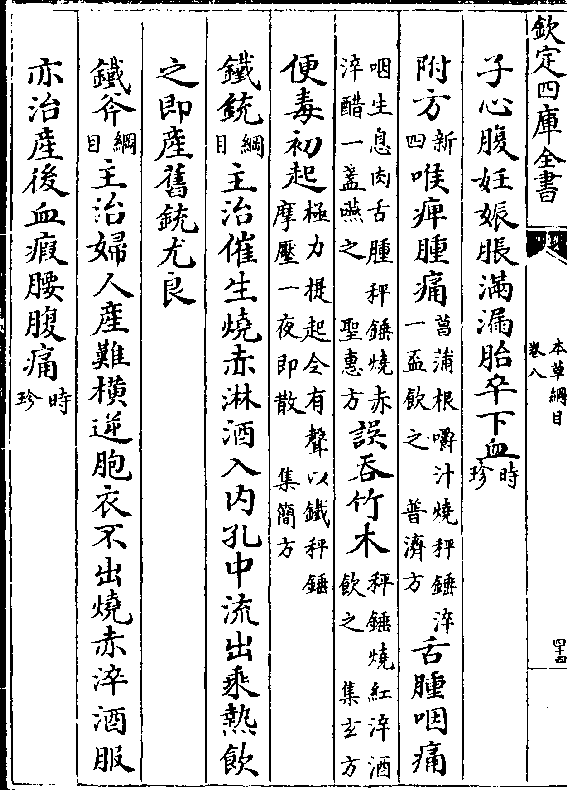 欽定四庫全書
本草綱目
卷八
四十四
子心腹妊娠脹滿漏胎卒下血時珍
附方新四喉痺腫痛菖蒲根嚼汁燒秤錘淬一盃飲之 普濟方舌腫咽痛
咽生息肉舌腫秤錘燒赤淬醋一盞嚥之 聖惠方誤吞竹木秤錘燒紅淬酒飲之 集玄方
便毒初起極力提起令有聲以鐵秤錘摩壓一夜即散 集簡方
鐵銃綱目主治催生燒赤淋酒入内孔中流出乘熱飲
之即産舊銃尤良
鐵斧綱目主治婦人産難橫逆胞衣不出燒赤淬酒服
亦治産後血瘕腰腹痛時珍